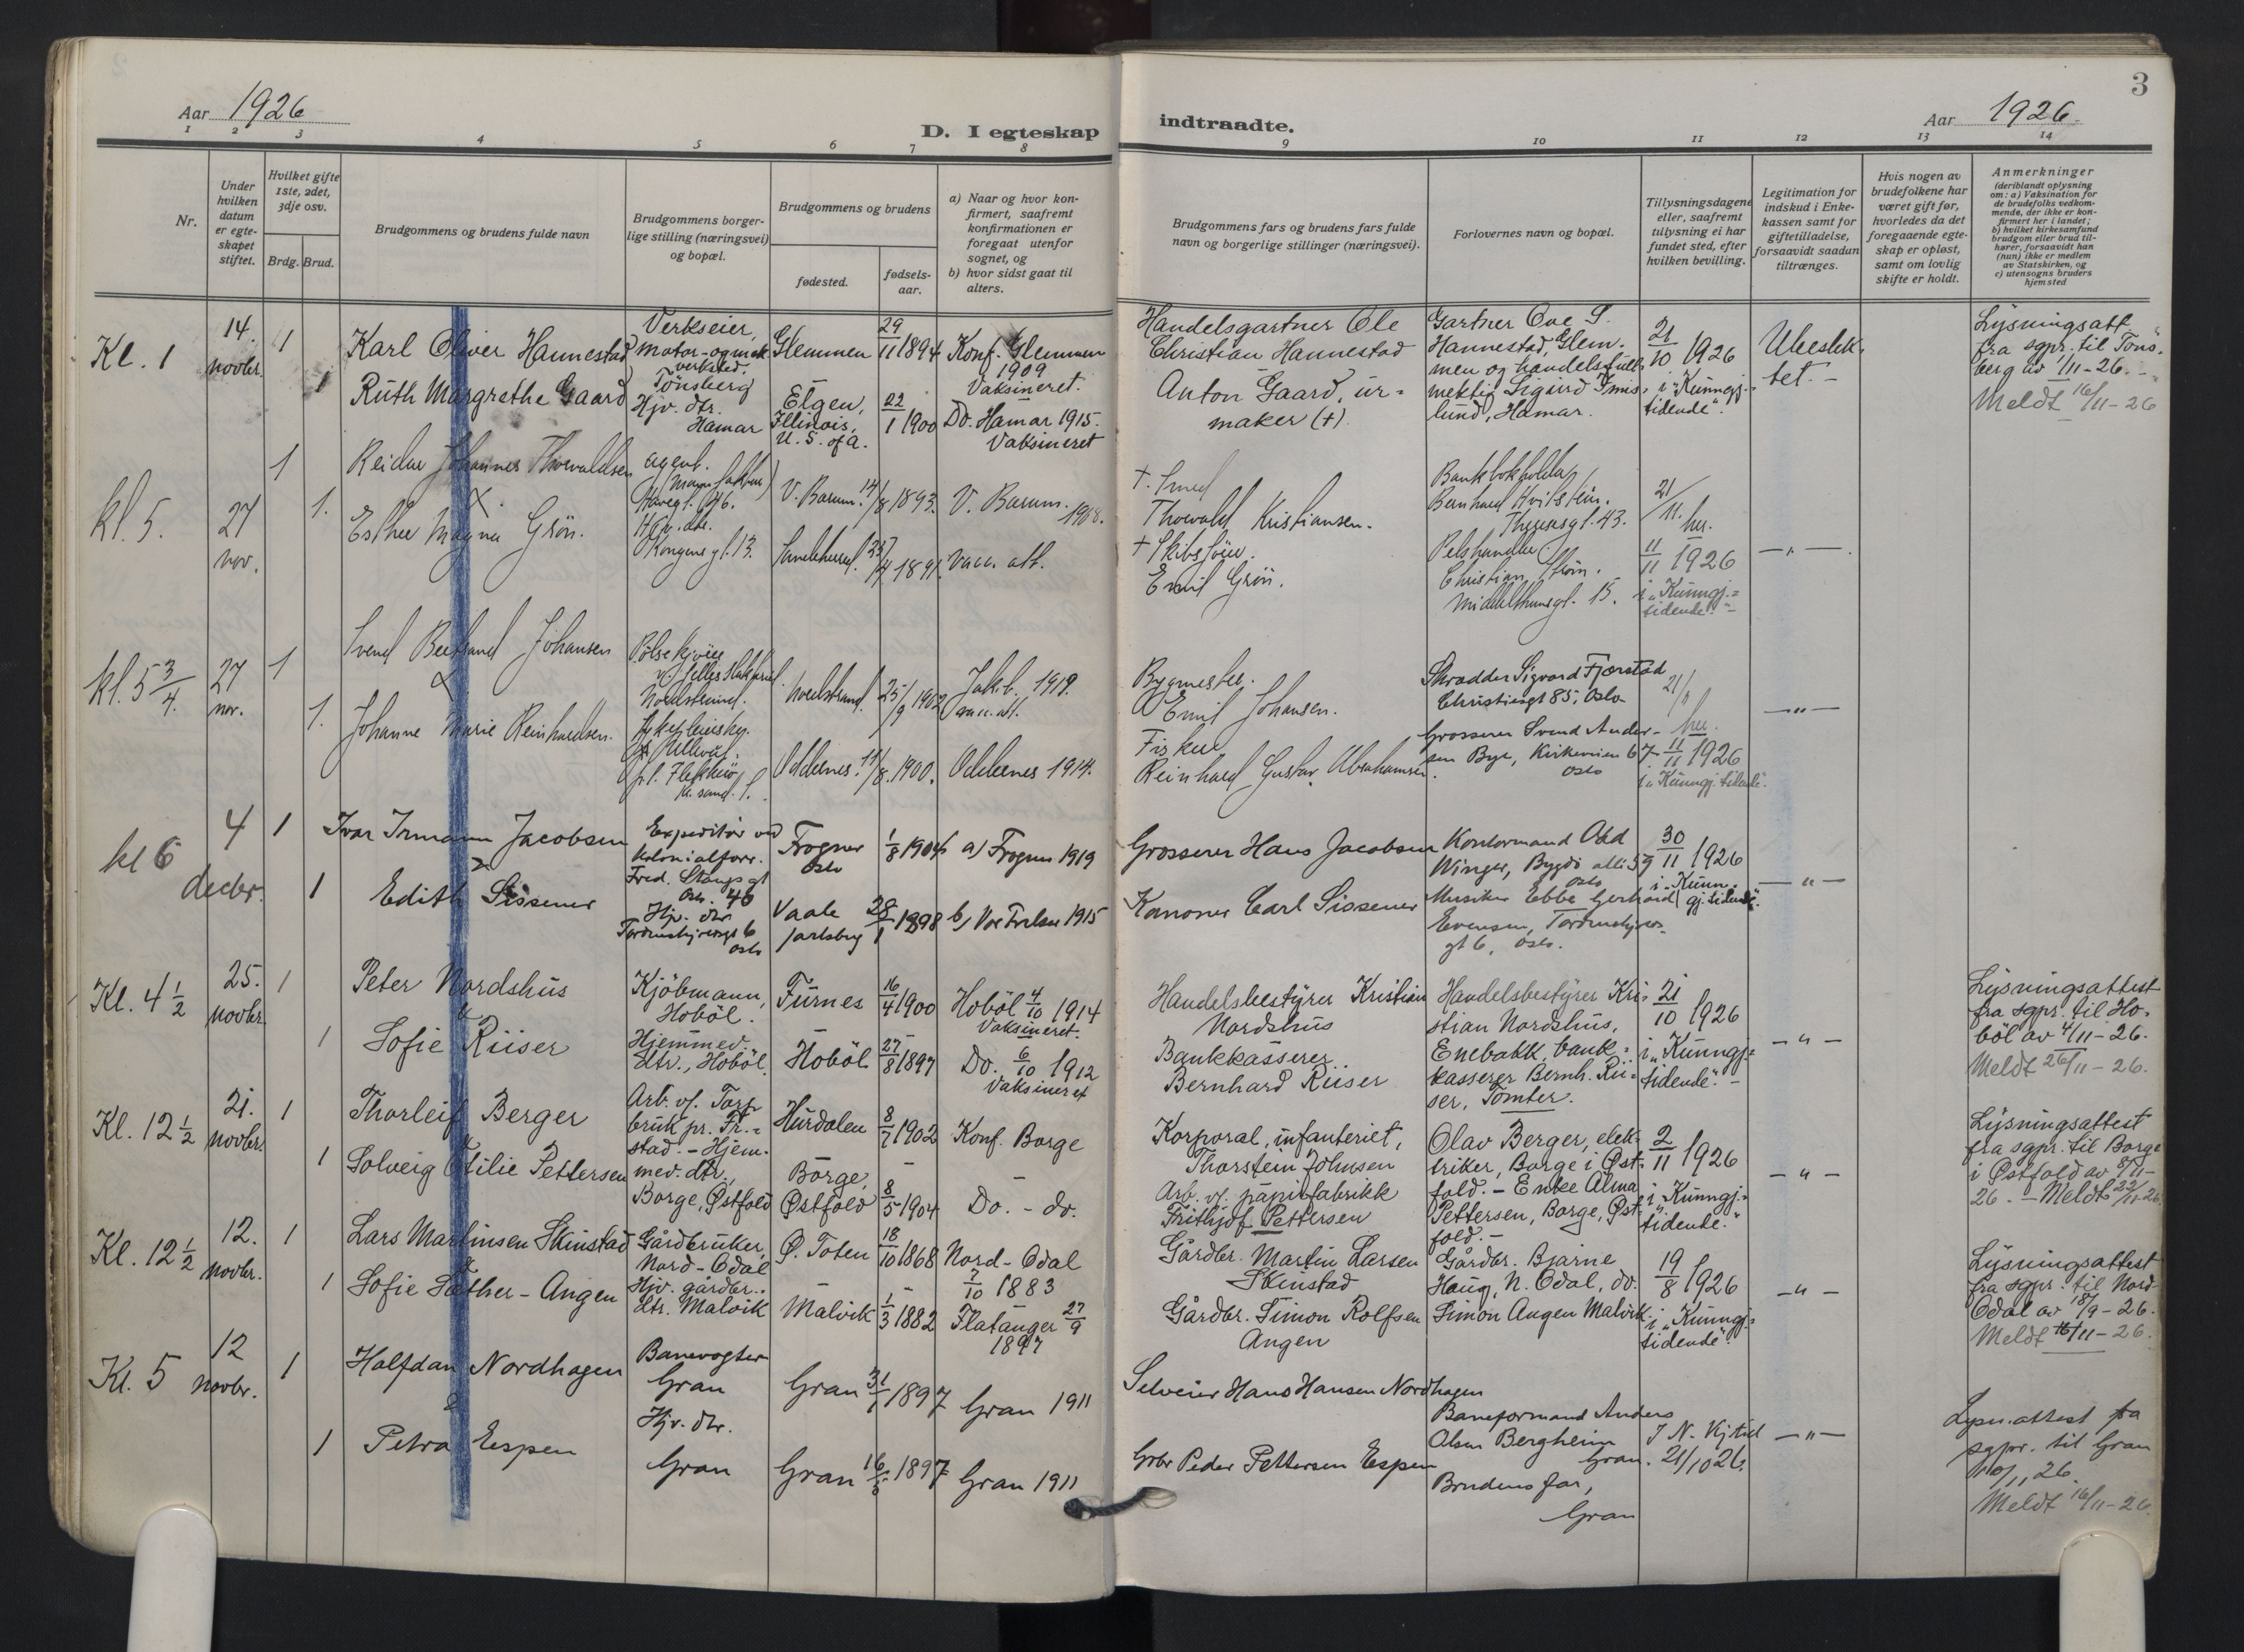 3
Aar 1926
D. I egteskap
indtraadte.
Aar 1926
1 2 3 4 5 6 7 8 9 10 11 12 13 14
Nr.
Under
hvilken
datum
er egte-
skapet
stiftet.
Hvilket gifte
1ste, 2det,
3dje osv.
Brdg. Brud.
Brudgommens og brudens fulde navn
Brudgommens borger-
lige stilling (næringsvei)
og bopæl.
Brudgommens og brudens
fødested.
fødsels-
aar.
a) Naar og hvor kon-
firmert, saafremt
konfirmationen er
foregaat utenfor
sognet, og
b) hvor sidst gaat til
alters.
Brudgommens fars og brudens fars fulde
navn og borgerlige stillinger (næringsvei).
Forlovernes navn og bopæl.
Tillysningsdagene
eller, saafremt
tillysning ei har
fundet sted, efter
hvilken bevilling.
Legitimation for
indskud i Enke-
kassen samt for
giftetilladelse,
forsaavidt saadan
tiltrænges.
Hvis nogen av
brudefolkene har
været gift før,
hvorledes da det
foregaaende egte-
skap er opløst,
samt om lovlig
skifte er holdt.
Anmerkninger
(deriblandt oplysning
om: a) Vaksination for
de brudefolks vedkom-
mende, der ikke er kon-
firmert her i landet;
b) hvilket kirkesamfund
brudgom eller brud til-
hører, forsaavidt han
(hun) ikke er medlem
av Statskirken, og
c) utensogns bruders
hjemsted
Kl. 1
14.
novbr.
1
1
Karl Oliver Hannestad
Ruth Margrethe Gaard
Verkseier,
Motor- og mek.
verksted,
Tönsberg
Hjv. dtr.
Hamar
Glemmen
Elgen,
Illinois,
U. S. of A.
29/11 1894
22/1 1900
Konf. Glemmen
1909
Vaksineret.
Do. Hamar 1915.
Vaksineret
Handelsgartner Ole
Christian Hannestad
Anton Gaard, ur-
maker (+).
Gartner Ove S.
Hannestad, Glem-
men og handelsfull-
mektig Sigurd
lund, Hamar.
21/10 1926
i "Kunngj.-
tidende".
Ubeslek-
tet. -
Lysningsatt.
fra sgpr. til Töns-
berg av 1/11-26. -
Meldt 16/11-26
kl. 5.
27
nov.
1
1.
Reidar Johannes Thorvaldsen
Esther Magna Grön.
agent.
Hjv. dtr.
Kongens gt. 13.
V. Bærum. 14/8 1893.
23/4 1891.
V. Bærum.
1908.
vacc. att.
+ Smed
Thorvald Kristiansen.
+ Skibsförer.
Emil Grön.
Bankbokholder
Bernhard Hvitstein.
Theresesgt. 43.
Pelshandler
Christian Strøm.
Middelthunsgt. 15.
21/11. her.
11/11 1926
i "Kunngj.-
tidende". -
— " —.
kl. 5 3/4.
27
nov.
1
1.
Svend Bertrand Johansen
Johanne Marie Reinhardsen.
Nordstrand.
Sykepleierske.
Ullevål.
Nordstrand. 25/9 1902
Oddernes. 11/8. 1900.
Jakob. 1919.
vacc. att.
Oddernes 1914.
Bygmester.
O Emil Johansen.
Fisker
Reinhard Gustav Abrahamsen.
Skrædder Sigvard Fjørstad
Christiesgt 85, Oslo
Grosserer Svend Ander-
sen Bye, Kirkeveien 67
Oslo
21/11
her.
11/11 1926
i "Kunngj. tidende".
— " —
kl 6
4
decbr.
1
1
Ivar Irmann Jacobsen
Edith Sissener
Expeditör ved
kolonialforr.
Fred. Stangs gt
Oslo. 40
Hjv. dtr
Tordenskjoldsgt 6
Oslo
Frogner
Oslo
Vaale
Jarlsberg
1/8 1904
28/1 1898
a) Frogner 1919
b) Vor Frelser 1915
Grosserer Hans Jacobsen
Kanoner Carl Sissener
Kontormand Odd
Winger, Bygdö alle 59
Oslo
Musiker Ebbe Gerhard
Evensen, Tordenskjolds-
gt 6, Oslo.
30/11 1926
i "Kunn-
gj. tidende".
— " —
Kl. 4 1/2
25.
novbr.
1
1
Peter Nordshus
Sofie Riiser
Kjöbmann,
Hoböl.
Hjemmev.
dtr., Hoböl.
Furnes
Hoböl
16/4 1900
27/8 1897
Hoböl 4/10 1914
Vaksineret.
Do. 6/10 1912
Vaksineret
Handelsbestyrer Kristian
Nordshus
Bankkasserer
Bernhard Riiser
Handelsbestyrer Kri-
stian Nordshus,
Enebakk, bank-
kasserer Bernh. Rii-
ser, Tomter.
21/10 1926
i "Kunngj.-
tidende". -
— " —
Lysningsattest
fra sgpr. til Ho-
böl av 4/11-26.
Meldt 26/11-26.
Kl. 12 1/2
21.
novbr.
1
1
Thorleif Berger
Solveig Otilie Pettersen
Arb. v. Torp
bruk pr. Fr.-
stad. - Hjem-
mev. dtr.,
Borge, Østfold
Hurdalen
Borge,
Østfold
8/7 1902
8/5 1904
Konf. Borge
Do. - do.
Korporal, infanteriet,
Thorstein Johnsen
Arb. v. papirfabrikk
Frithjof Pettersen
Olav Berger, elek-
triker, Borge i Øst-
fold. - Enke Alma
Pettersen, Borge, Øst-
fold. -
2/11 1926
i "Kunngj.-
tidende".
— " —
Lysningsattest
fra sgpr. til Borge
i Østfold av 8/11-
26. - Meldt 22/11-26
Kl. 12 1/2
12.
novbr.
1
1
Lars Martinsen Skinstad
Sofie Sæther-Angen
Gårdbruker,
Nord-Odal
Hjv. gårdbr.-
dtr. Malvik
Ø. Toten
Malvik
18/10 1868
1/3 1882
Nord-Odal
7/10 1883
Flatanger 27/9
1897
Gårdbr. Martin Larsen
Skinstad
Gårdbr. Simon Rolfsen
Angen
Gårdbr. Bjarne
Haug, N. Odal, do.
Simon Angen Malvik.
19/8 1926
i "Kunngj.-
tidende".
— " —
Lysningsattest
fra sgpr. til Nord-
Odal av 18/9-26.
Meldt 16/11-26.
Kl. 5
12
novbr.
1
1
Halfdan Nordhagen
&
Petra Espen
Banevogter
Gran
Hjv. dtr.
Gran
Gran 31/1 1897
Gran 16/5 1897
Gran 1911
Gran 1911
Selveier Hans Hansen Nordhagen
Grbr Peder Pettersen Espen
Baneformand Anders
Olsen Bergheim
Gran.
Brudens far,
Gran
I N. Kj tid
21/10 26.
— " —
Lysn.attest fra
sgpr. til Gran
10/11 26.
Meldt 16/11-26.